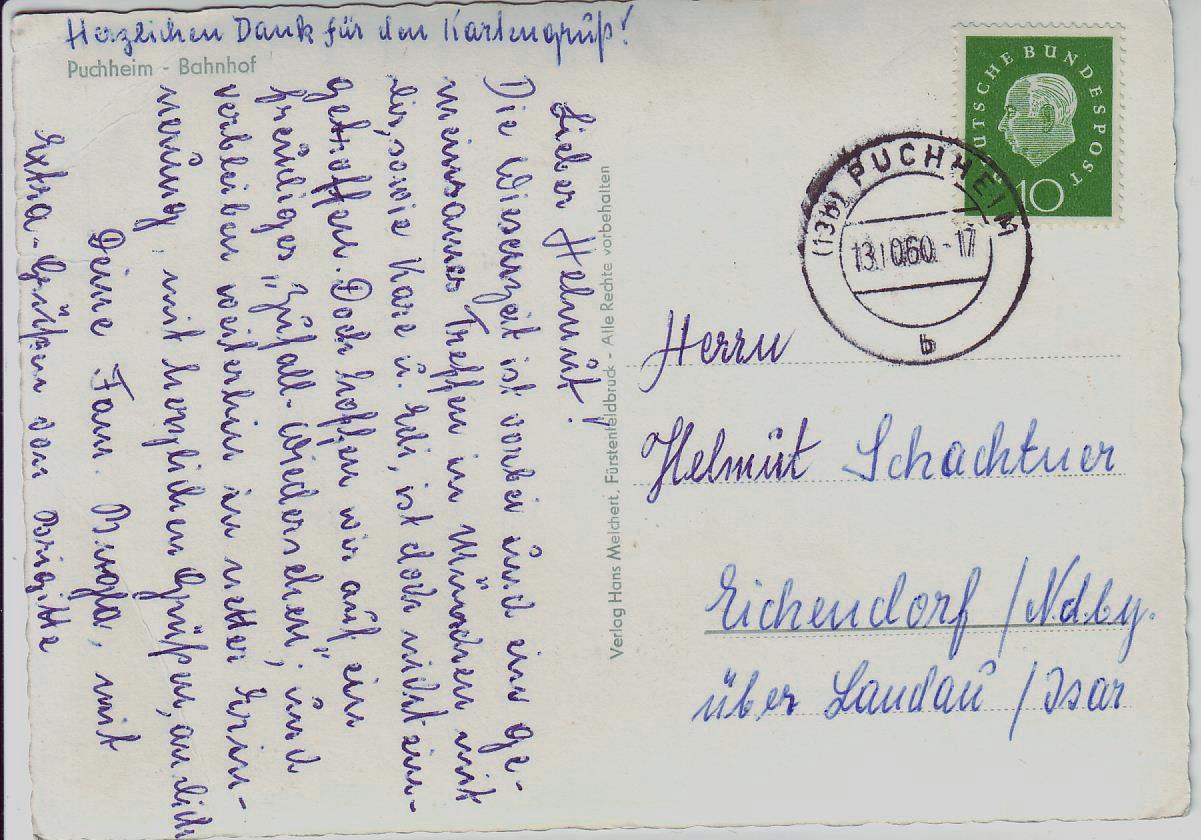 Herzlichen Dank für den Kartengruß!
Puchheim - Bahnhof
Lieber Helmut!
Die Wiesenzeit ist vorbei und ein ge-
meinsames Treffen in München mit
dir, sowie Kare u. Edi, ist doch nicht ein-
getroffen. Doch hoffen wir auf ein
freudiges „Zufall-Wiedersehen", und
verbleiben weiterhin in netter Erin-
nerung, mit herzlichen Grüßen, an dich
Deine Fam. Bugla, mit
Extra-Grüßen von Brigitte
Verlag Hans Melchert, Fürstenfeldbruck - Alle Rechte vorbehalten
DEUTSCHE BUNDESPOST
10
(13b) PUCHHEIM
13.10.60.-17
b
Herrn
Helmut Schachtner
Eichendorf / Ndby.
über Landau / Isar